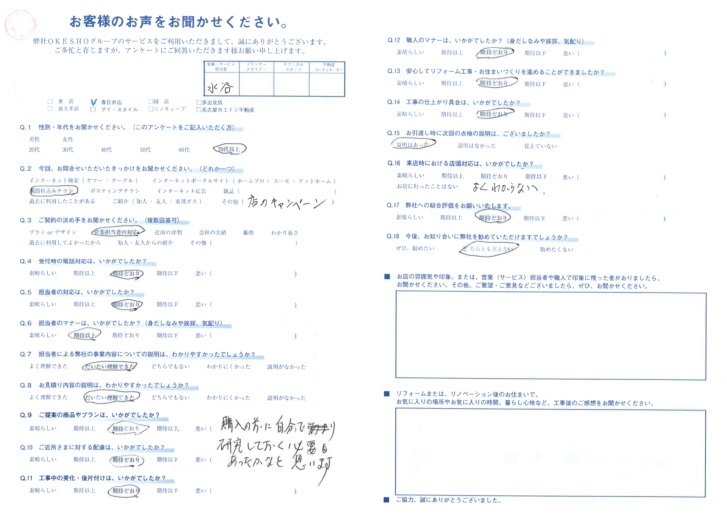 お客様のお声をお聞かせください。
弊社OKESHOグループのサービスをご利用いただきまして、誠にありがとうございます。
ご多忙と存じますが、アンケートにご回答いただきます様お願い申し上げます。
営業・サービス担当者 プランナーデザイナー テクニカルスタッフ
水谷
本店 春日井店 緑店 多治見店
長久手店 アイ・スタイル リノキューブ 名古屋ロエイジ不動産
Q.1 性別・年代をお聞かせください。(このアンケートをご記入いただく方)
男性 女性
20代 30代 40代 50代 60代 70代以上
Q.2 今回、お問合せいただいたきっかけをお聞かせください。(どれか一つ)
インターネット検定(ヤフー・グーグル) インターネットポータルサイト(ホームプロ・スーモ・アットホーム)
新聞折込みチラシ ポスティングチラシ インターネット広告 雑誌( )
過去に工事したことがある ご紹介(知人・友人・東邦ガス) その他( 店のキャンペーン
Q.3 ご契約の決め手をお聞かせください。(複数回答可)
プラン or デザイン 営業担当者の対応 近所の評判 会社の実績 価格 わかり易さ
過去に利用してよかったから 知人・友人からの紹介 その他( )
Q.4 受付時の電話対応は、いかがでしたか?
素晴らしい 期待以上 期待どおり 期待以下 悪い( )
Q.5 担当者の対応は、いかがでしたか?
素晴らしい 期待以上 期待どおり 期待以下 悪い( )
Q.6 担当者のマナーは、いかがでしたか?(身だしなみや挨拶、気配り)
素晴らしい 期待以上 期待どおり 期待以下 悪い( )
Q.7 担当者による弊社の事業内容についての説明は、わかりやすかったでしょうか?
よく理解できた だいたい理解できた どちらでもない わかりにくかった 説明がなかった
Q.8 お見積り内容の説明は、わかりやすかったでしょうか?
よく理解できた だいたい理解できた どちらでもない わかりにくかった 説明がなかった
Q.9 ご提案の商品やプランは、いかがでしたか?
素晴らしい 期待以上 期待どおり 期待以下 悪い( 購入の前に自分で
研究しておく必要も
あったかなと思います
Q.10 ご近所さまに対する配慮は、いかがでしたか?
素晴らしい 期待以上 期待どおり 期待以下 悪い(
Q.11 工事中の美化・後片付けは、いかがでしたか?
素晴らしい 期待以上 期待どおり 期待以下 悪い( )
Q.12 職人のマナーは、いかがでしたか?(身だしなみや挨拶、気配り)
素晴らしい 期待以上 期待どおり 期待以下 悪い( )
Q.13 安心してリフォーム工事・お住まいづくりを進めることができましたか?
素晴らしい 期待以上 期待どおり 期待以下 悪い( )
Q.14 工事の仕上がり具合は、いかがでしたか?
素晴らしい 期待以上 期待どおり 期待以下 悪い( )
Q.15 お引渡し時に次回の点検の説明は、ございましたか?
説明はあった 説明はなかった 覚えていない
Q.16 来店時における店頭対応は、いかがでしたか?
素晴らしい 期待以上 期待どおり 期待以下 悪い( )
お店に行ったことはない よくわからない。
Q.17 弊社への総合評価をお願いいたします。
素晴らしい 期待以上 期待どおり 期待以下 悪い( )
Q.18 今後、お知り合いに弊社を勧めていただけますでしょうか?
ぜひ、勧めたい どちらとも言えない 勧めたくない
■ お店の雰囲気や印象、または、営業(サービス)担当者や職人で印象に残った者がおりましたら、
お聞かせください。その他、ご要望・ご意見などございましたら、ぜひ、お聞かせください。
■ リフォームまたは、リノベーション後のお住まいで、
お気に入りの場所やお気に入りの時間、暮らし心地など、工事後のご感想をお聞かせください。
■ ご協力、誠にありがとうございました。